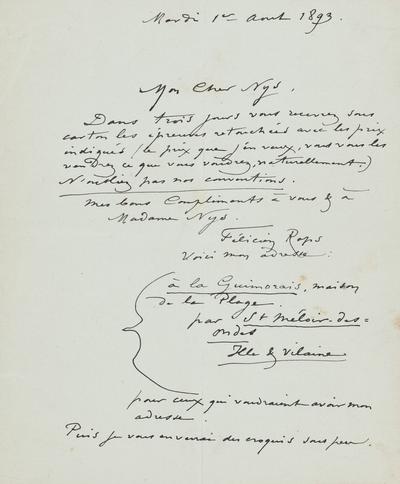 Mardi 1er Aout 1893.
Mon Cher Nys.
Dans trois jours vous recevrez sous
carton les épreuves retouchées avec les prix
indiqués (le prix que j'en veux, vous vous les
vendrez ce que vous voudrez, naturellement.)
N'oubliez pas nos conventions.
Mes bons Compliments à vous & à
Madame Nys.
Félicien Rops
Voici mon adresse:
à la Guimorais, maison
de la Plage
par St Méloir-des-
ondes
Ille & Vilaine
pour ceux qui voudraient avoir mon
adresse.
Puis je vous enverrai des croquis sous peu.